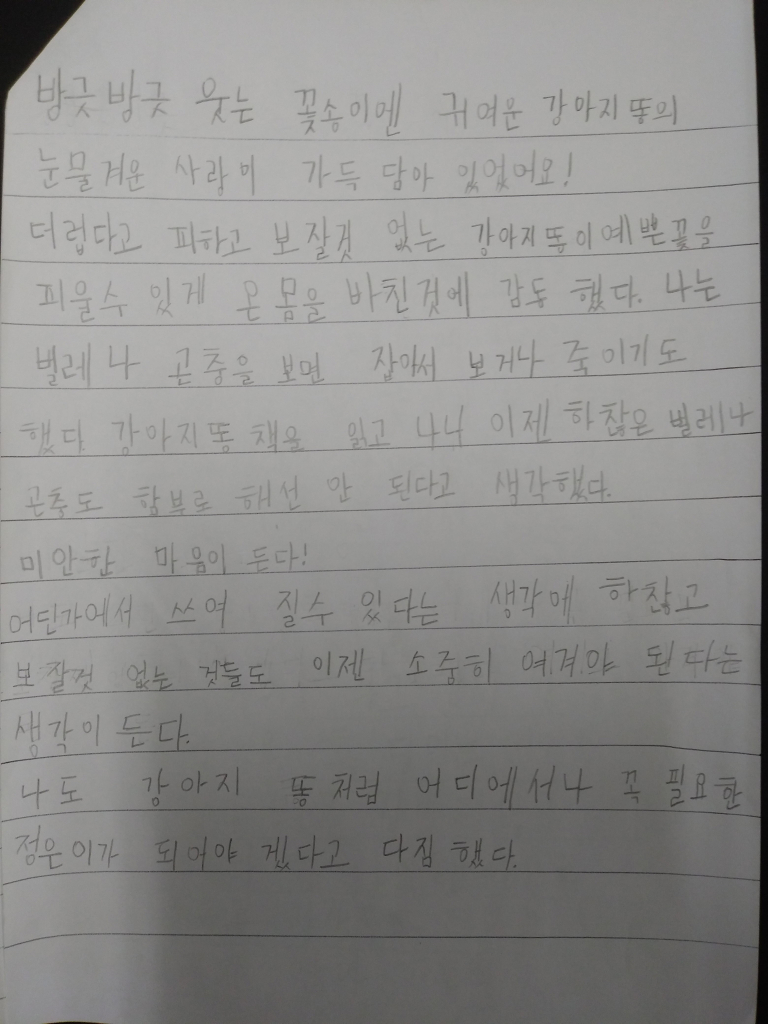 방긋방긋 웃는 꽃송이엔 귀여운 강아지똥의
눈물겨운 사랑이 가득 담아 있었어요!
더럽다고 피하고 보잘것 없는 강아지똥이예쁜꽃을
피울수 있게 온몸을 바친것에 감동 했다. 나는
벌레나 곤충을 보면 잡아서 보거나 죽이기도
했다. 강아지똥 책을 읽고 나니 이젠 하찮은 벌레나
곤충도 함부로 해선 안 된다고 생각했다.
미안한 마음이 든다!
어딘가에서 쓰여 질수 있다는 생각에 하찮고
보잘것 없는 것들도 이젠 소중히 여겨야 된다는
생각이 든다.
나도 강아지 똥처럼 어디에서나 꼭 필요한
정은이가 되어야 겠다고 다짐 했다.